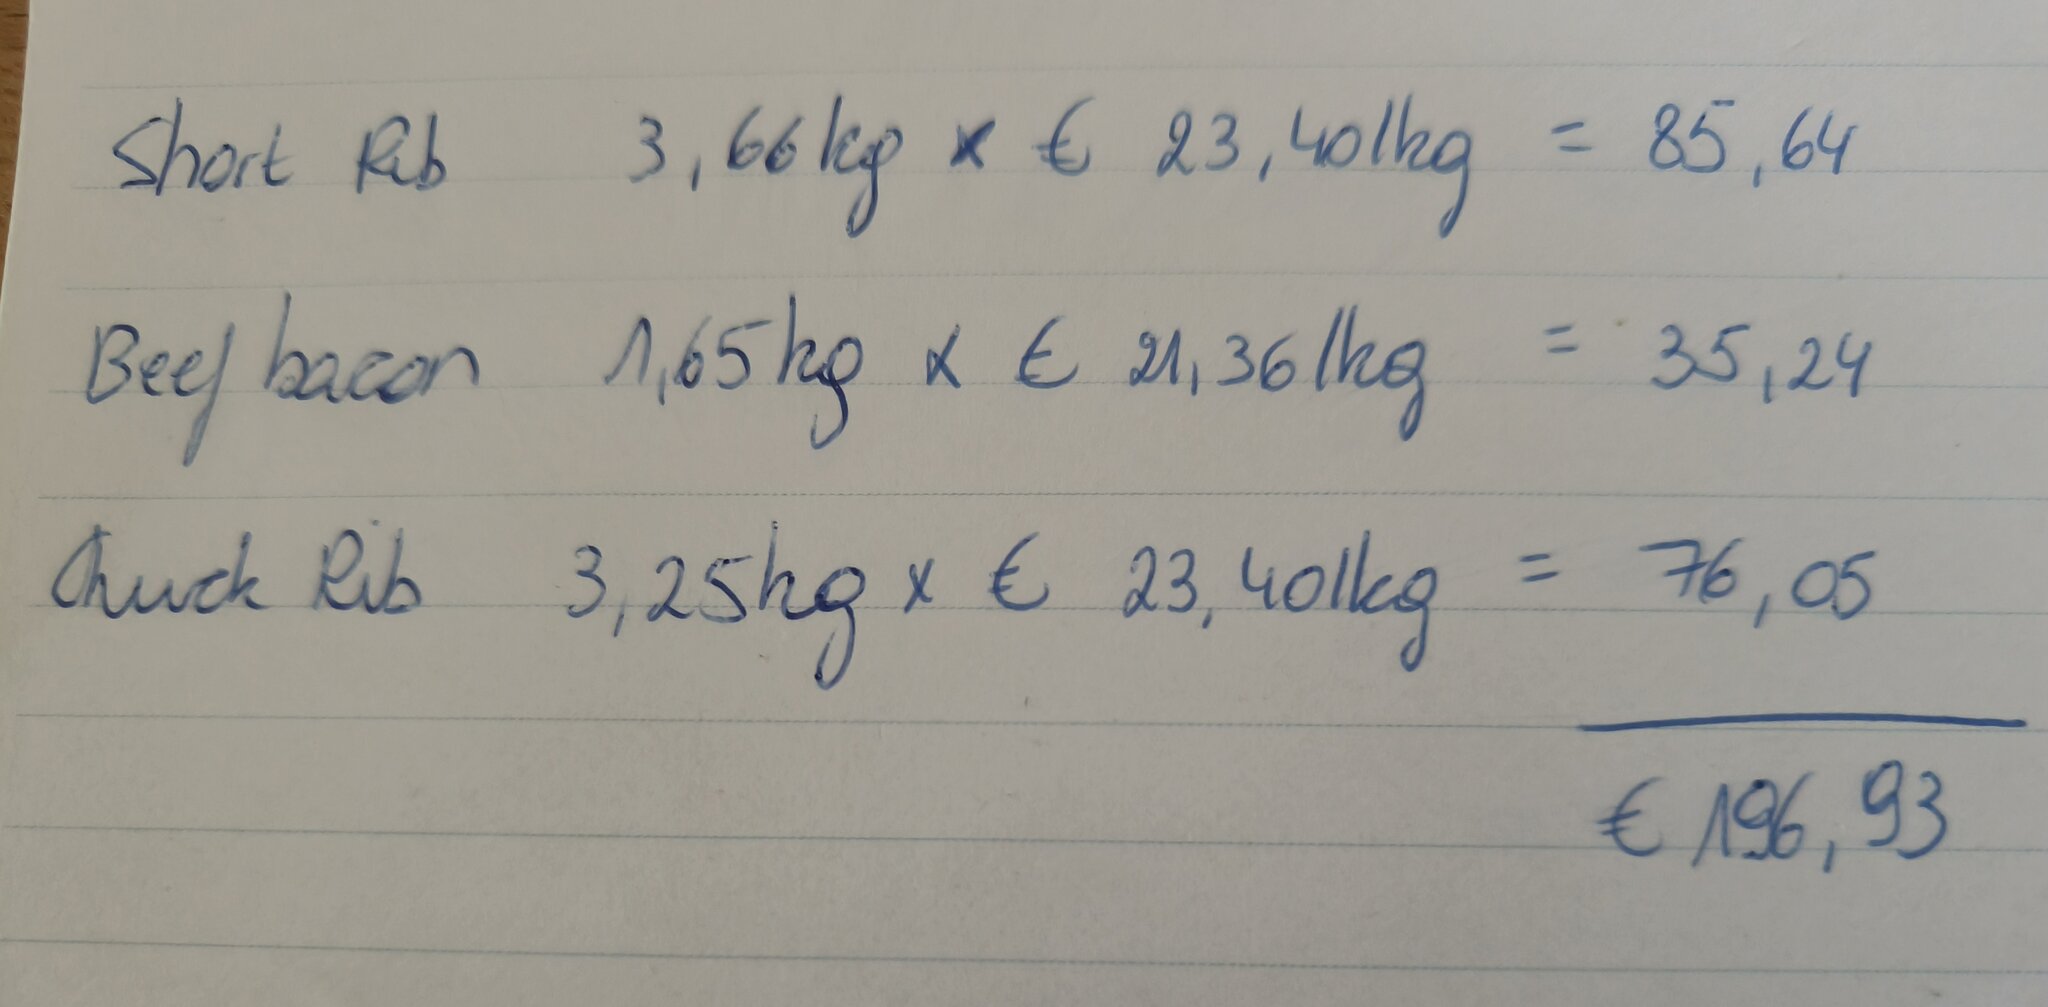 Short Rib 3,66kg x € 23,40/kg = 85,64
Beef bacon 1,65kg x € 21,36/kg = 35,24
Chuck Rib 3,25kg x € 23,40/kg = 76,05
€ 196,93